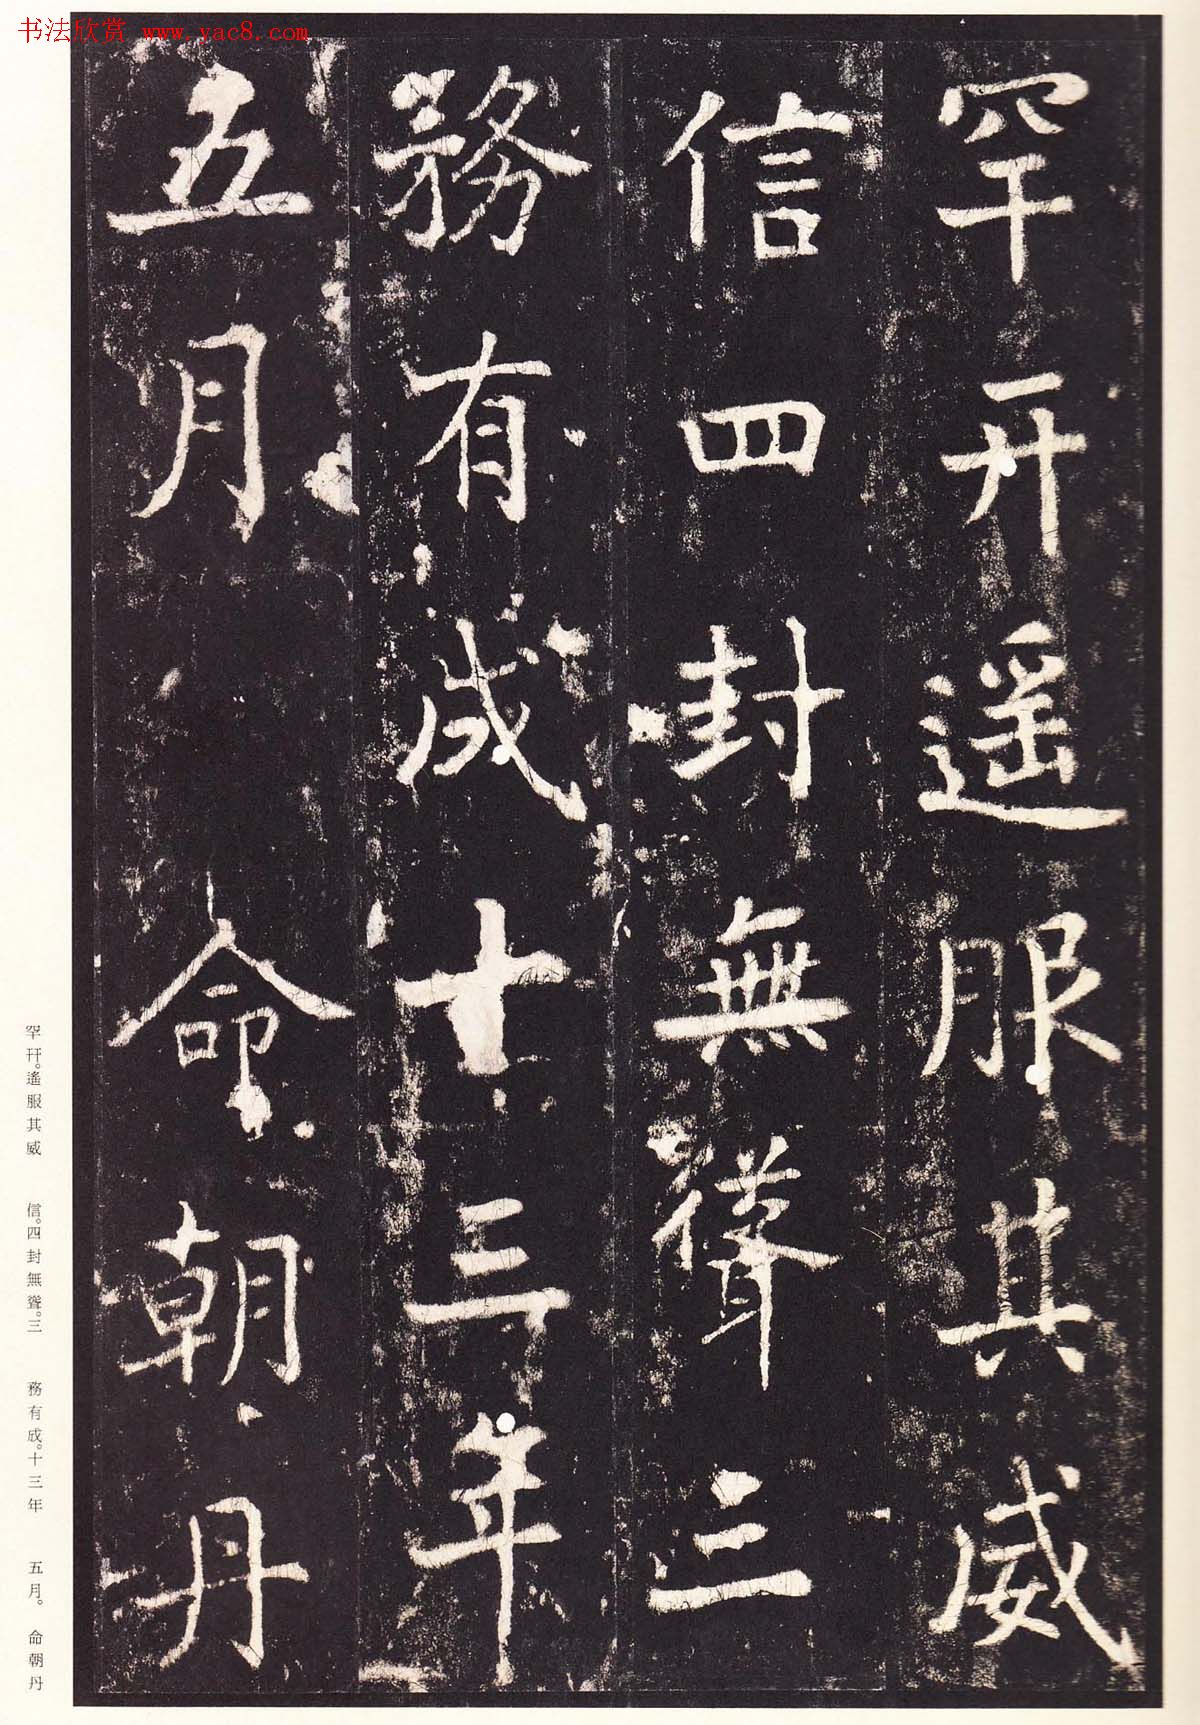 书法欣赏 www.yac8.com
罕幵遥服其威
信四封無聳三
務有成十三年
五月 命朝丹
罕幵。遙服其威 信。四封無聳。三 務有成。十三年 五月。 命朝丹